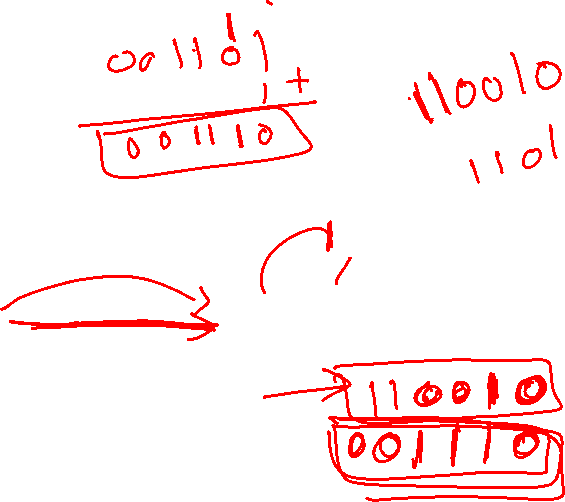 1
001101
1 +
001110
110010
1101
110010
001110